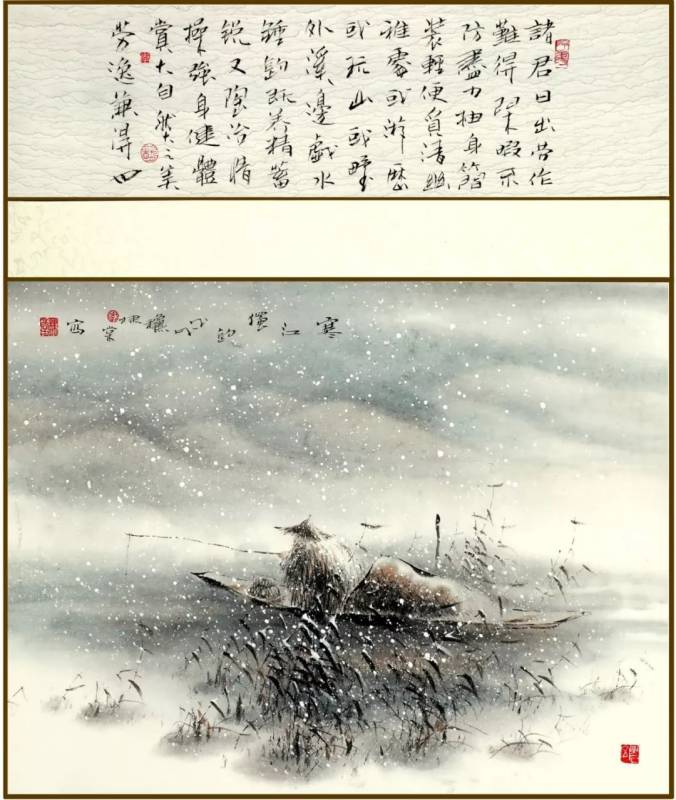 諸君日出勞作
難得閑暇不
防盡力抽身簡
裝輕便負清幽
雅處或游歷
或玩山或野
外溪邊戲水
錘釣既养精蓄
锐又陶冶情
操強身健體
賞大自然之美
勞逸兼得也
寒江獨釣
棠寫